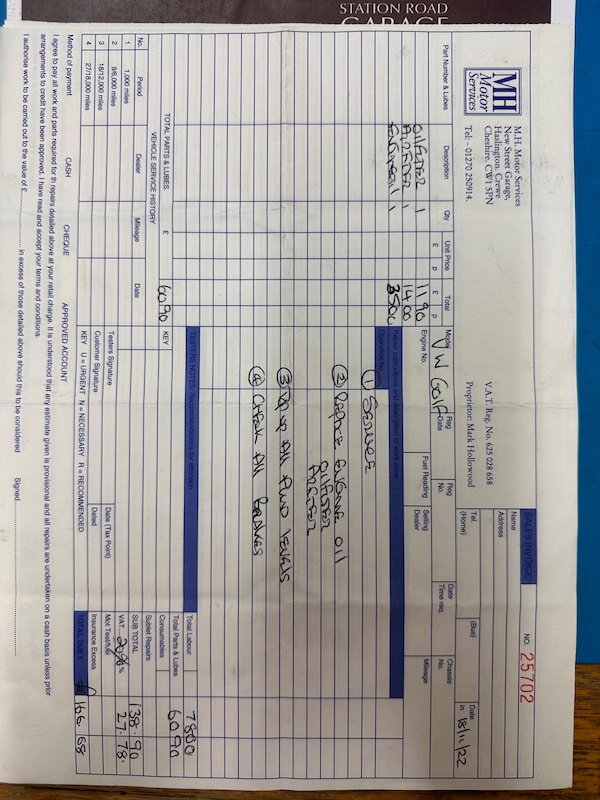 STATION ROAD
GARAGE
MH
Motor
Services
M.H. Motor Services
New Street Garage,
Haslington, Crewe
Cheshire. CW1 5PN
Tel: - 01270 250914.
V.A.T. Reg. No. 625 028 658
Proprietor: Mark Hollowood
SALES INVOICE
NO. 25702
Name
Address
Tel. (Home)
(Bus)
Date in 18/11/22
Model VW Golf
Reg Date
Reg No.
Date Time req.
Chassis No.
Engine No.
Fuel Reading
Selling Dealer
Mileage
Part Number & Lubes
Description
Qty
Unit Price
£ p
Total
£ p
OILFILTER 1 11 90
AIRFILTER 1 14 00
ENGINEOIL 1 35 00
TOTAL PARTS & LUBES. £ 60 90
Repair instructions and description of work done
Operation No.
① SERVICE
② REPLACE ENGINE OIL
OILFILTER
AIRFILTER
③ TOP UP ALL FLUID LEVELS
④ CHECK ALL BRAKES
VEHICLE SERVICE HISTORY
No. Period Dealer Mileage Date
1 1,000 miles
2 9/6,000 miles
3 18/12,000 miles
4 27/18,000 miles
KEY
TESTERS NOTES: Recommendations for attention
Testers Signature
Date (Tax Point)
Customer Signature
Dated
KEY U = URGENT N = NECESSARY R = RECOMMENDED
Total Labour 78 00
Total Parts & Lubes 60 90
Consumables
Sublet Repairs
SUB TOTAL 138 . 90
VAT. 20% % 27 . 78.
Mot Test/fuel
Insurance Excess
TOTAL DUE £ £ 166. 68
Method of payment CASH CHEQUE APPROVED ACCOUNT
I agree to pay all work and parts required for th repairs detailed above at your retail charge. It is understood that any estimate given is provisional and all repairs are undertaken on a cash basis unless prior
arrangements to credit have been approved. I have read and accept your terms and conditions.
I authorise work to be carried out to the value of £.................... in excess of those detailed above should this to be considered Signed....................